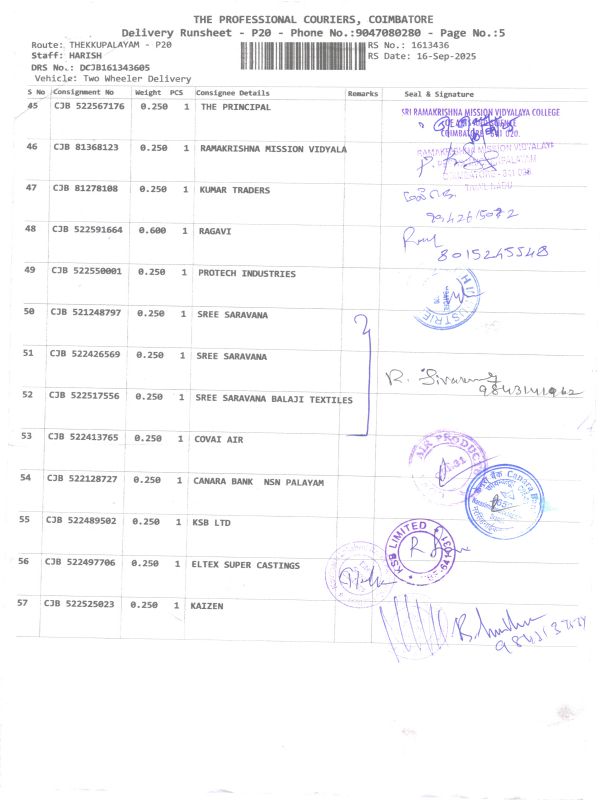 THE PROFESSIONAL COURIERS, COIMBATORE
Delivery Runsheet - P20 - Phone No.:9047080280 - Page No.:5
Route: THEKKUPALAYAM - P20 RS No.: 1613436
Staff: HARISH RS Date: 16-Sep-2025
DRS No.: DCJB161343605
Vehicle: Two Wheeler Delivery
S No Consignment No Weight PCS Consignee Details Remarks Seal & Signature
45 CJB 522567176 0.250 1 THE PRINCIPAL
SRI RAMAKRISHNA MISSION VIDYALAYA COLLEGE
COIMBATORE - 641 020.
46 CJB 81368123 0.250 1 RAMAKRISHNA MISSION VIDYALA
RAMAKRISHNA MISSION VIDYALAYA
COIMBATORE - 641 020
TAMIL NADU
47 CJB 81278108 0.250 1 KUMAR TRADERS
48 CJB 522591664 0.600 1 RAGAVI
8015245548
49 CJB 522550001 0.250 1 PROTECH INDUSTRIES
50 CJB 521248797 0.250 1 SREE SARAVANA
51 CJB 522426569 0.250 1 SREE SARAVANA
9843141962
52 CJB 522517556 0.250 1 SREE SARAVANA BALAJI TEXTILES
53 CJB 522413765 0.250 1 COVAI AIR
AIR PRODUC
54 CJB 522128727 0.250 1 CANARA BANK NSN PALAYAM
केनरा बैंक Canara Bank
55 CJB 522489502 0.250 1 KSB LTD
KSB LIMITED
56 CJB 522497706 0.250 1 ELTEX SUPER CASTINGS
57 CJB 522525023 0.250 1 KAIZEN